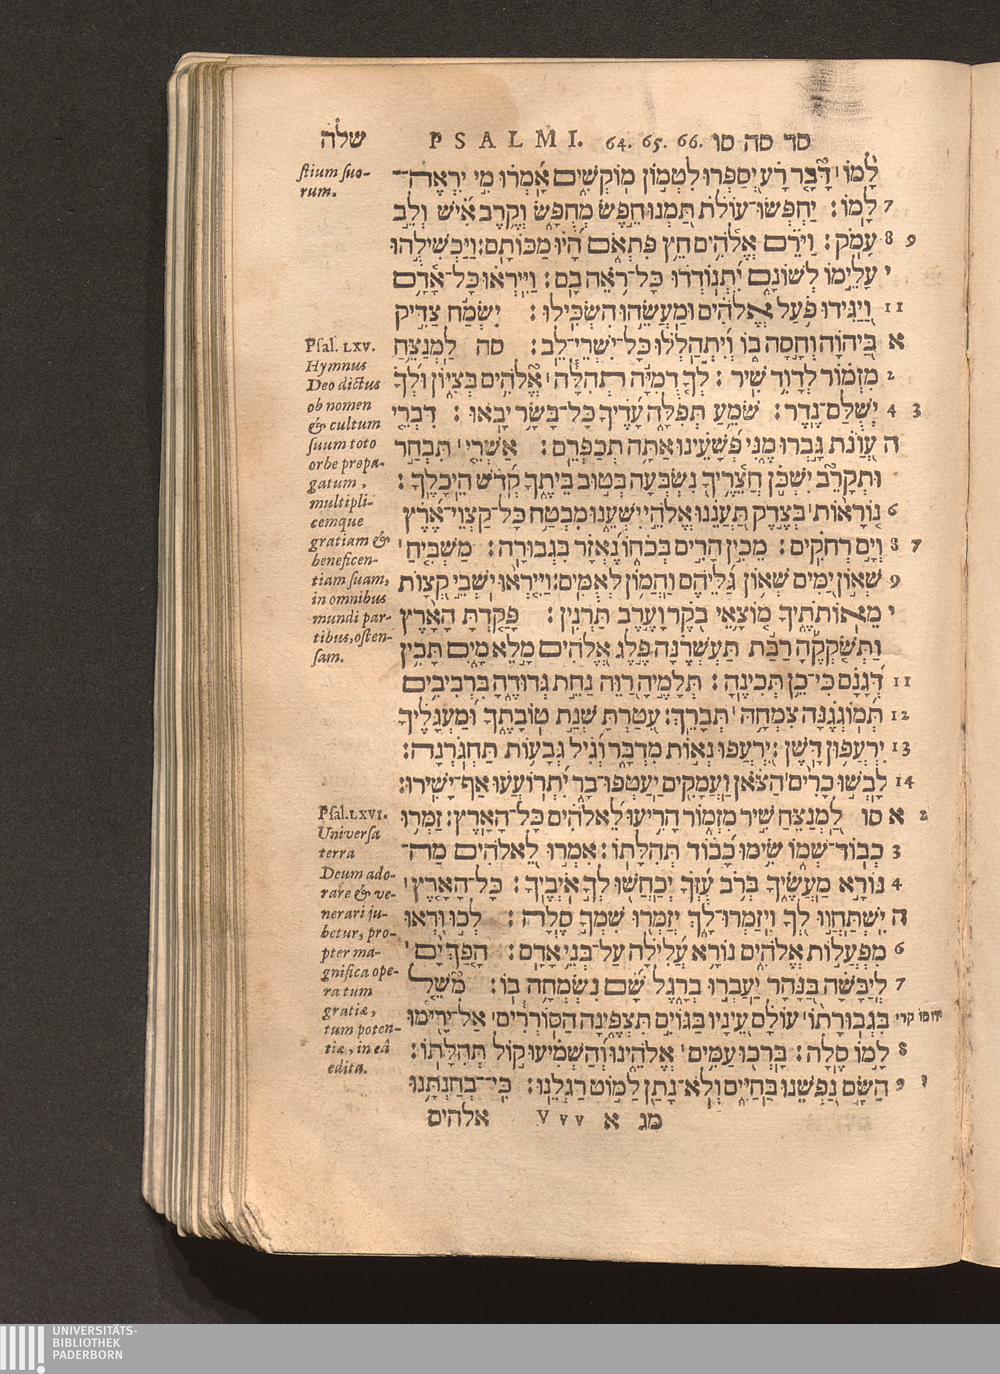 סד סה סו 64. 65. 66. PSALMI. שלה
stium suo-
rum.
לָמוֹ דָּבָר רָע יְסַפְּרוּ לִטְמוֹן מוֹקְשִׁים אָמְרוּ מִי יִרְאֶה־
7 לָּמוֹ׃ יַחְפְּשׂוּ־עוֹלֹת תַּמְנוּ חֵפֶשׂ מְחֻפָּשׂ וְקֶרֶב אִישׁ וְלֵב
9 8 עָמֹק׃ וַיֹּרֵם אֱלֹהִים חֵץ פִּתְאֹם הָיוּ מַכּוֹתָם׃ וַיַּכְשִׁילֻהוּ
י עָלֵימוֹ לְשׁוֹנָם יִתְנוֹדֲדוּ כָּל־רֹאֵה בָם׃ וַיִּירְאוּ כָּל־אָדָם
11 וַיַּגִּידוּ פֹּעַל אֱלֹהִים וּמַעֲשֵׂהוּ הִשְׂכִּילוּ׃ יִשְׂמַח צַדִּיק
א בַּיהוָֹה וְחָסָה בוֹ וְיִתְהַלְלוּ כָּל־יִשְׁרֵי־לֵב׃ סה לַמְנַצֵּחַ
2 מִזְמוֹר לְדָוִד שִׁיר׃ לְךָ דֻמִיָּה תְהִלָּה אֱלֹהִים בְּצִיּוֹן וּלְךָ
3 4 יְשֻׁלַּם־נֶדֶר׃ שֹׁמֵעַ תְּפִלָּה עָדֶיךָ כָּל־בָּשָׂר יָבֹאוּ׃ דִּבְרֵי
ה עֲוֹנֹת גָּבְרוּ מֶנִּי פְּשָׁעֵינוּ אַתָּה תְכַפְּרֵם׃ אַשְׁרֵי תִּבְחַר
וּתְקָרֵב יִשְׁכֹּן חֲצֵרֶיךָ נִשְׂבְּעָה בְּטוּב בֵּיתֶךָ קְדֹשׁ הֵיכָלֶךָ׃
6 נוֹרָאוֹת בְּצֶדֶק תַּעֲנֵנוּ אֱלֹהֵי יִשְׁעֵנוּ מִבְטָח כָּל־קַצְוֵי־אֶרֶץ
7 8 וְיָם רְחֹקִים׃ מֵכִין הָרִים בְּכֹחוֹ נֶאְזָר בִּגְבוּרָה׃ מַשְׁבִּיחַ
9 שְׁאוֹן יַמִּים שְׁאוֹן גַּלֵּיהֶם וַהֲמוֹן לְאֻמִּים׃ וַיִּירְאוּ יֹשְׁבֵי קְצָוֹת
י מֵאוֹתֹתֶיךָ מוֹצָאֵי בֹקֶר וָעֶרֶב תַּרְנִין׃ פָּקַדְתָּ הָאָרֶץ
וַתְּשֹׁקְקֶהָ רַבַּת תַּעְשְׁרֶנָּה פֶּלֶג אֱלֹהִים מָלֵא מָיִם תָּכִין
11 דְּגָנָם כִּי־כֵן תְּכִינֶהָ׃ תְּלָמֶיהָ רַוֵּה נַחֵת גְּדוּדֶהָ בִּרְבִיבִים
12 תְּמֹוגְגֶנָּה צִמְחָהּ תְּבָרֵךְ׃ עִטַּרְתָּ שְׁנַת טוֹבָתֶךָ וּמַעְגָּלֶיךָ
13 יִרְעֲפוּן דָּשֶׁן׃ יִרְעֲפוּ נְאוֹת מִדְבָּר וְגִיל גְּבָעוֹת תַּחְגֹּרְנָה׃
14 לָבְשׁוּ כָרִים הַצֹּאן וַעֲמָקִים יַעַטְפוּ־בָר יִתְרוֹעֲעוּ אַף־יָשִׁירוּ׃
2 א סו לַמְנַצֵּחַ שִׁיר מִזְמוֹר הָרִיעוּ לֵאלֹהִים כָּל־הָאָרֶץ׃ זַמְּרוּ
3 כְבוֹד־שְׁמוֹ שִׂימוּ כָבוֹד תְּהִלָּתוֹ׃ אִמְרוּ לֵאלֹהִים מַה־
4 נּוֹרָא מַעֲשֶׂיךָ בְּרֹב עֻזְּךָ יְכַחֲשׁוּ לְךָ אֹיְבֶיךָ׃ כָּל־הָאָרֶץ
ה יִשְׁתַּחֲווּ לְךָ וִיזַמְּרוּ־לָךְ יְזַמְּרוּ שִׁמְךָ סֶלָה׃ לְכוּ וּרְאוּ
6 מִפְעֲלוֹת אֱלֹהִים נוֹרָא עֲלִילָה עַל־בְּנֵי אָדָם׃ הָפַךְ יָם
7 לְיַבָּשָׁה בַּנָּהָר יַעַבְרוּ בְרָגֶל שָׁם נִשְׂמְחָה בּוֹ׃ מֹשֵׁל
בִּגְבוּרָתוֹ עוֹלָם עֵינָיו בַּגּוֹיִם תִּצְפֶּינָה הַסּוֹרְרִים אַל־יָרִימוּ
8 לָמוֹ סֶלָה׃ בָּרְכוּ עַמִּים אֱלֹהֵינוּ וְהַשְׁמִיעוּ קוֹל תְּהִלָּתוֹ׃
י 9 הַשָּׂם נַפְשֵׁנוּ בַּחַיִּים וְלֹא־נָתַן לַמּוֹט רַגְלֵנוּ׃ כִּי־בְחַנְתָּנוּ
מג א Vvv אלהים
Psal. LXV.
Hymnus
Deo dictus
ob nomen
& cultum
suum toto
orbe propa-
gatum,
multipli-
cemque
gratiam &
beneficen-
tiam suam,
in omnibus
mundi par-
tibus, osten-
sam.
Psal. LXVI.
Universa
terra
Deum ado-
rare & ve-
nerari ju-
betur, pro-
pter ma-
gnifica ope-
ra tum
gratiæ,
tum poten-
tiæ, in eâ
edita.
UNIVERSITÄTS-
BIBLIOTHEK
PADERBORN